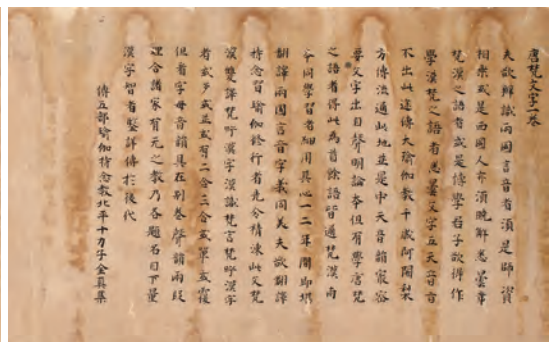 唐梵文字一卷
夫欲辨識兩國言音者須是師資
相承或是西國人亦須曉解悉曇章
梵漢之語者或是博學君子欲得作
學漢梵之語者悉曇文字五天音旨
不出此途傳大瑜伽教千歲阿闍梨
方傳流通此地並是中天音韻最密
要文字出自聲明論本但有學唐梵
之語者得此為首餘語皆通梵漢兩
本同學習者細用其心一二年間即堪
翻譯兩國言音字義同美夫欲翻譯
持念習瑜伽行者先令精凍此文梵
漢雙譯梵呼漢字漢識梵言梵呼漢字
者或多或並或有二合三合或單或覆
但看字母音韻具在別卷聲韻兩段
理合諸家有元之教乃各題名目下量
漢字智者鑒詳傳於後代
傳五部瑜伽持念教北平十力子全真集